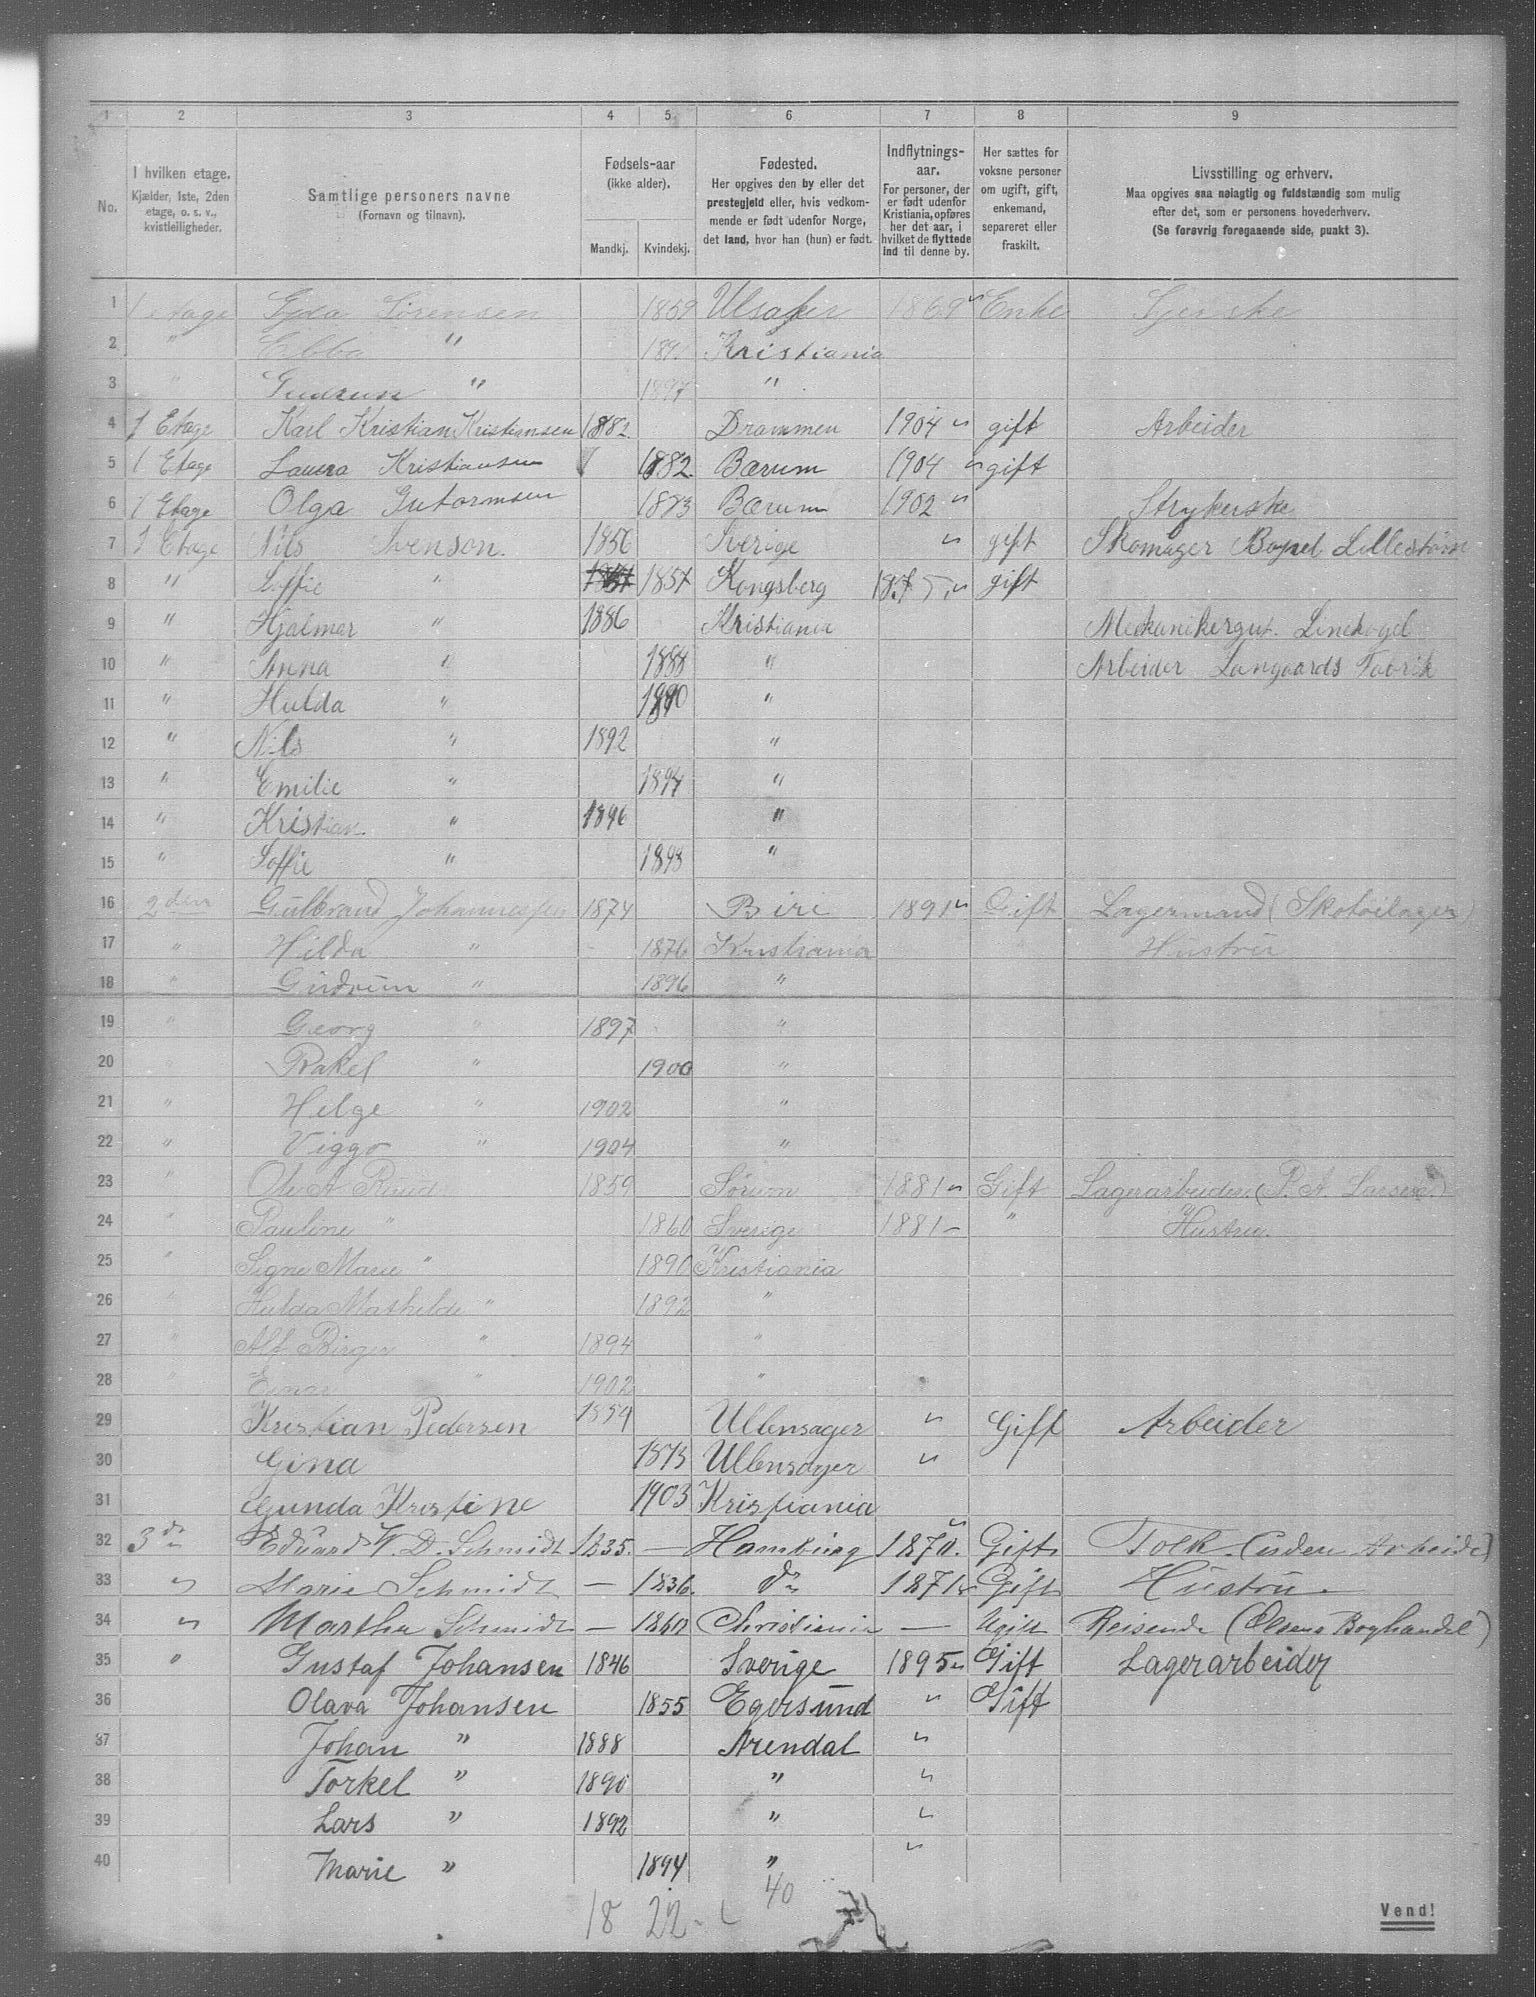 1 2 3 4 5 6 7 8 9
No.
I hvilken etage.
Kjælder, 1ste, 2den
etage, o. s. v.,
kvistleiligheder.
Samtlige personers navne
(Fornavn og tilnavn).
Fødsels-aar
(ikke alder).
Mandkj. Kvindekj.
Fødested.
Her opgives den by eller det
prestegjeld eller, hvis vedkom-
mende er født udenfor Norge,
det land, hvor han (hun) er født.
Indflytnings-
aar.
For personer, der
er født udenfor
Kristiania, opføres
her det aar, i
hvilket de flyttede
ind til denne by.
Her sættes for
voksne personer
om ugift, gift,
enkemand,
separeret eller
fraskilt.
Livsstilling og erhverv.
Maa opgives saa nøiagtig og fuldstændig som mulig
efter det, som er personens hovederhverv.
(Se forøvrig foregaaende side, punkt 3).
1 1 etage Sørensen 1859 Ulsaker 1869 Enke
2 " Ebba " Kristiania
3 " Gudrun " 1897 "
4 1 Etage Karl Kristian Kristiansen 1882 Drammen 1904 gift Arbeider
5 1 Etage Laura Kristiansen 1882 Bærum 1904 gift
6 1 Etage Olga Gutormsen 1883 Bærum 1902 Strykerske
7 1 Etage Nils Svenson. 1856 Sverige " gift Skomager Bopæl Lillestrøm
8 " Soffie " 1857 Kongsberg gift
9 " Hjalmar " 1886 Kristiania Mekanikergut.
10 " Anna " 1888 " Arbeider Langaards Fabrik
11 " Hulda " 1890 "
12 " Nils " 1892 "
13 " Emilie " 1894 "
14 " Kristian " 1896 "
15 " Soffie " 1898 "
16 2den Gulbrand Johannessen 1874 Biri 1891 Gift Lagermand (Skotøilager)
17 " Hilda " 1876 Kristiania " Hustru
18 " Gudrun " 1896 "
19 " Georg " 1897 "
20 " Rakel " 1900 "
21 " Helge " 1902 "
22 " Viggo " 1904 "
23 " Ole A. Ruud 1859 Sørum 1881 Gift Lagerarbeider (P. A. Larsen.)
24 " Pauline " 1860 Sverige 1881 " Hustru.
25 " Signe Marie " 1890 Kristiania
26 " Hulda Mathilde " 1892 "
27 " Alf Birger " 1894 "
28 " Einar " 1902 "
29 Kristian Pedersen 1859 Ullensager " Gift Arbeider
30 Gina 1873 Ullensager "
31 Gunda Kristine 1903 Kristiania
32 3de Eduard W. D. Schmidt 1835. — Hamburg 1870. Gift Tolk (uden Arbeide)
33 " Marie Schmidt — 1836. do 1871 Gift Hustru
34 " Martha Schmidt — 1860 Christiania — Ugift Reisende (Olsens Boghandel)
35 " Gustaf Johansen 1846 Sverige 1895 Gift Lagerarbeider
36 Olava Johansen 1855 Egersund " Gift
37 Johan " 1888 Arendal "
38 Torkel " 1890 " "
39 Lars " 1892 " "
40 Marie " 1894 " "
18 22 40
Vend!